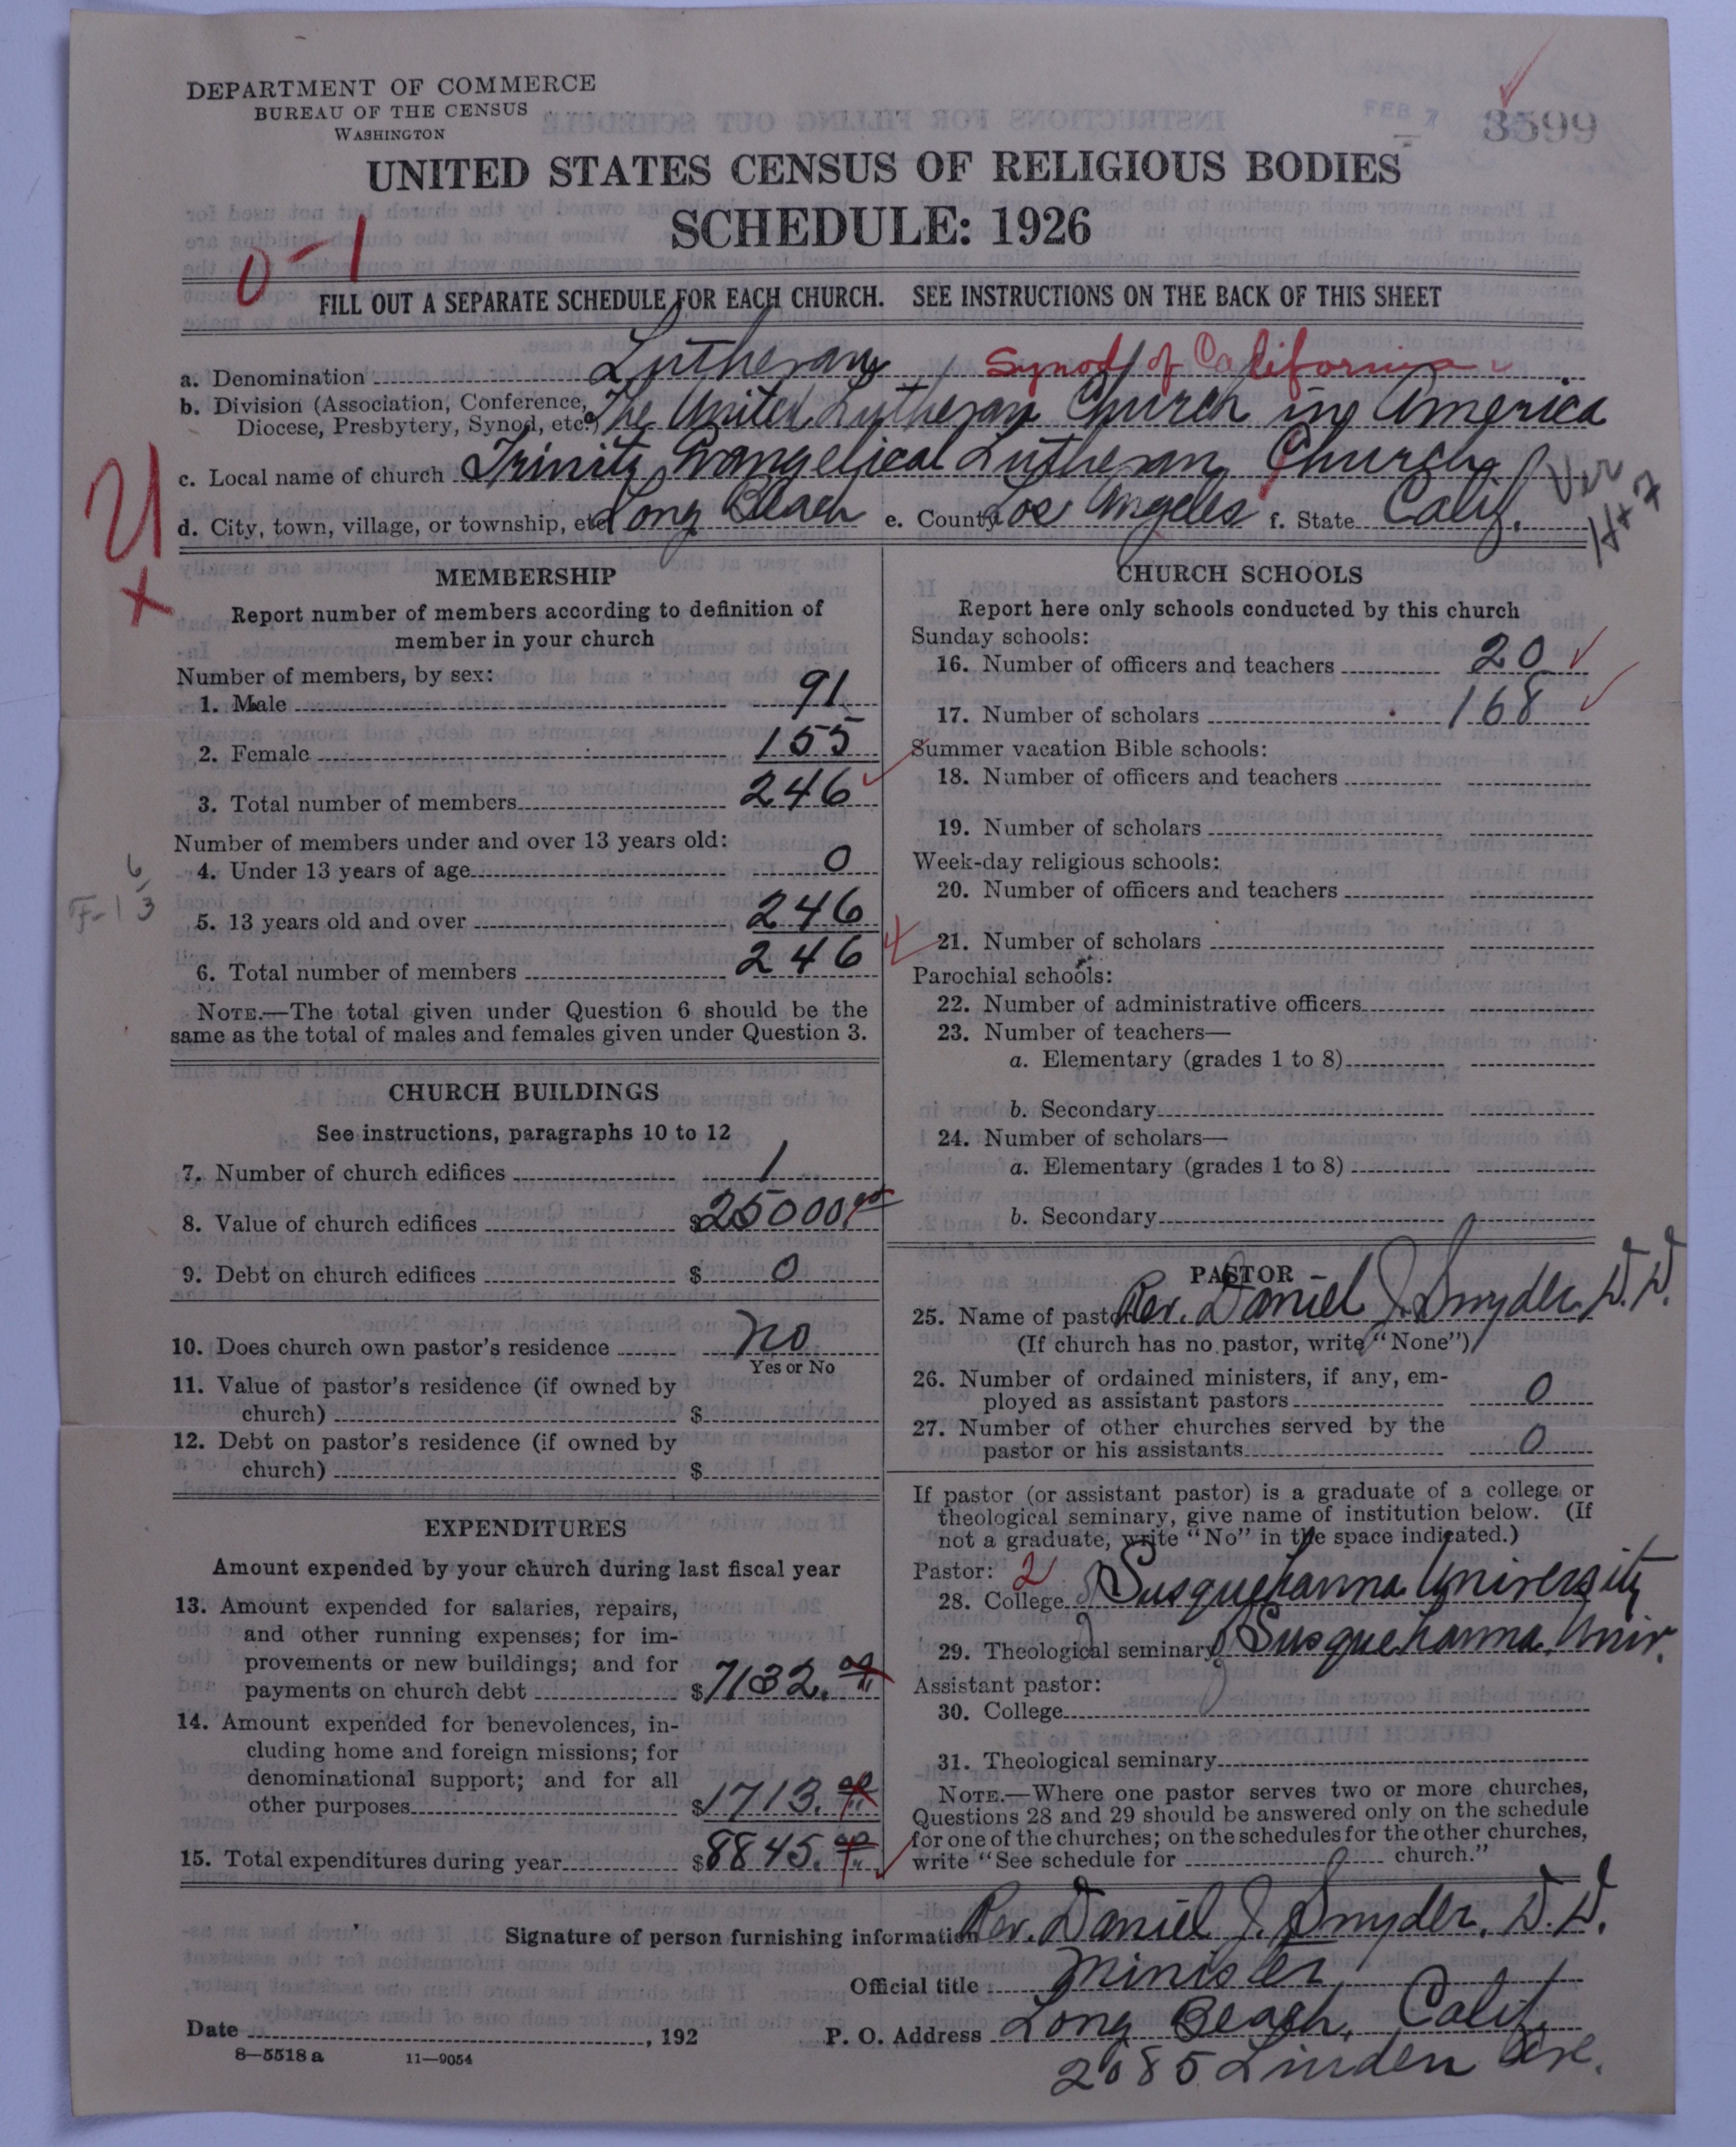 DEPARTMENT OF COMMERCE
BUREAU OF THE CENSUS
WASHINGTON
FEB 7
3599
UNITED STATES CENSUS OF RELIGIOUS BODIES
SCHEDULE: 1926
0-1
FILL OUT A SEPARATE SCHEDULE FOR EACH CHURCH. SEE INSTRUCTIONS ON THE BACK OF THIS SHEET
a. Denomination Lutheran Synod of California
b. Division (Association, Conference, Diocese, Presbytery, Synod, etc.) The United Lutheran Church in America
c. Local name of church Trinity Evangelical Lutheran Church
d. City, town, village, or township, etc. Long Beach e. County Los Angeles f. State Calif.
MEMBERSHIP
Report number of members according to definition of
member in your church
Number of members, by sex:
1. Male 91
2. Female 155
3. Total number of members 246
Number of members under and over 13 years old:
4. Under 13 years of age 0
5. 13 years old and over 246
6. Total number of members 246
NOTE.—The total given under Question 6 should be the
same as the total of males and females given under Question 3.
CHURCH BUILDINGS
See instructions, paragraphs 10 to 12
7. Number of church edifices 1
8. Value of church edifices $25000.00
9. Debt on church edifices $ 0
10. Does church own pastor's residence no
Yes or No
11. Value of pastor's residence (if owned by
church) $
12. Debt on pastor's residence (if owned by
church) $
EXPENDITURES
Amount expended by your church during last fiscal year
13. Amount expended for salaries, repairs,
and other running expenses; for im-
provements or new buildings; and for
payments on church debt $7132.00
14. Amount expended for benevolences, in-
cluding home and foreign missions; for
denominational support; and for all
other purposes $1713.00
15. Total expenditures during year $8845.00
CHURCH SCHOOLS
Report here only schools conducted by this church
Sunday schools:
16. Number of officers and teachers 20
17. Number of scholars 168
Summer vacation Bible schools:
18. Number of officers and teachers
19. Number of scholars
Week-day religious schools:
20. Number of officers and teachers
21. Number of scholars
Parochial schools:
22. Number of administrative officers
23. Number of teachers—
a. Elementary (grades 1 to 8)
b. Secondary
24. Number of scholars—
a. Elementary (grades 1 to 8)
b. Secondary
PASTOR
25. Name of pastor Rev. Daniel J. Snyder, D.D.
(If church has no pastor, write "None")
26. Number of ordained ministers, if any, em-
ployed as assistant pastors 0
27. Number of other churches served by the
pastor or his assistants 0
If pastor (or assistant pastor) is a graduate of a college or
theological seminary, give name of institution below. (If
not a graduate, write "No" in the space indicated.)
Pastor: 2
28. College Susquehanna University
29. Theological seminary Susquehanna Univ.
Assistant pastor:
30. College
31. Theological seminary
NOTE.—Where one pastor serves two or more churches,
Questions 28 and 29 should be answered only on the schedule
for one of the churches; on the schedules for the other churches,
write "See schedule for church."
Signature of person furnishing information Rev. Daniel J. Snyder, D.D.
Official title Minister
Date , 192 P. O. Address Long Beach, Calif.
8—5518 a 11—9054
2085 Linden Ave.